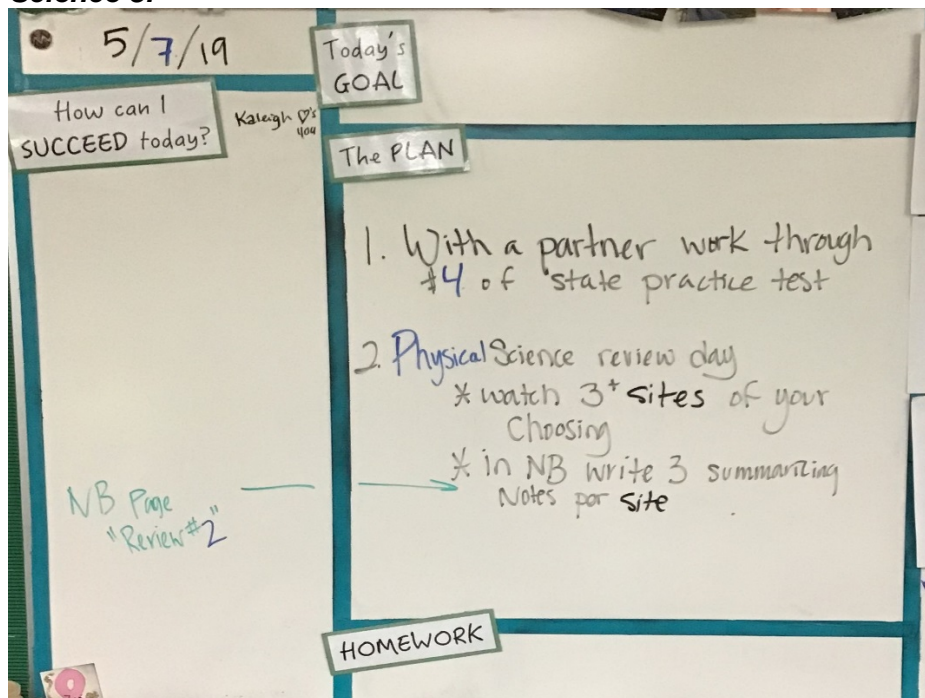 5/7/19
Today's
GOAL
How can I
SUCCEED today?
Kaleigh ♡'s
you
The PLAN
1. With a partner work through
#4 of state practice test
2. Physical Science review day
* watch 3+ sites of your
Choosing
* in NB write 3 summarizing
Notes per site
NB Page
"Review #2"
HOMEWORK